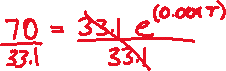 70/33.1 = 33.1 e^(0.001T)/33.1